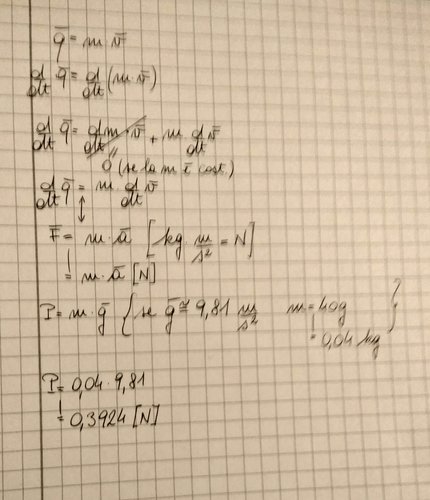 q̄ = m v̄
d/dt q̄ = d/dt (m v̄)
d/dt q̄ = dm/dt · v̄ + m · d/dt v̄
0 (se la m è cost.)
d/dt q̄ = m · d/dt v̄
F̄ = m · ā [kg · m/s² = N]
= m · ā [N]
P = m · ḡ { se ḡ ≅ 9,81 m/s² m = 40g
= 0,04 kg }
P = 0,04 · 9,81
= 0,3924 [N]